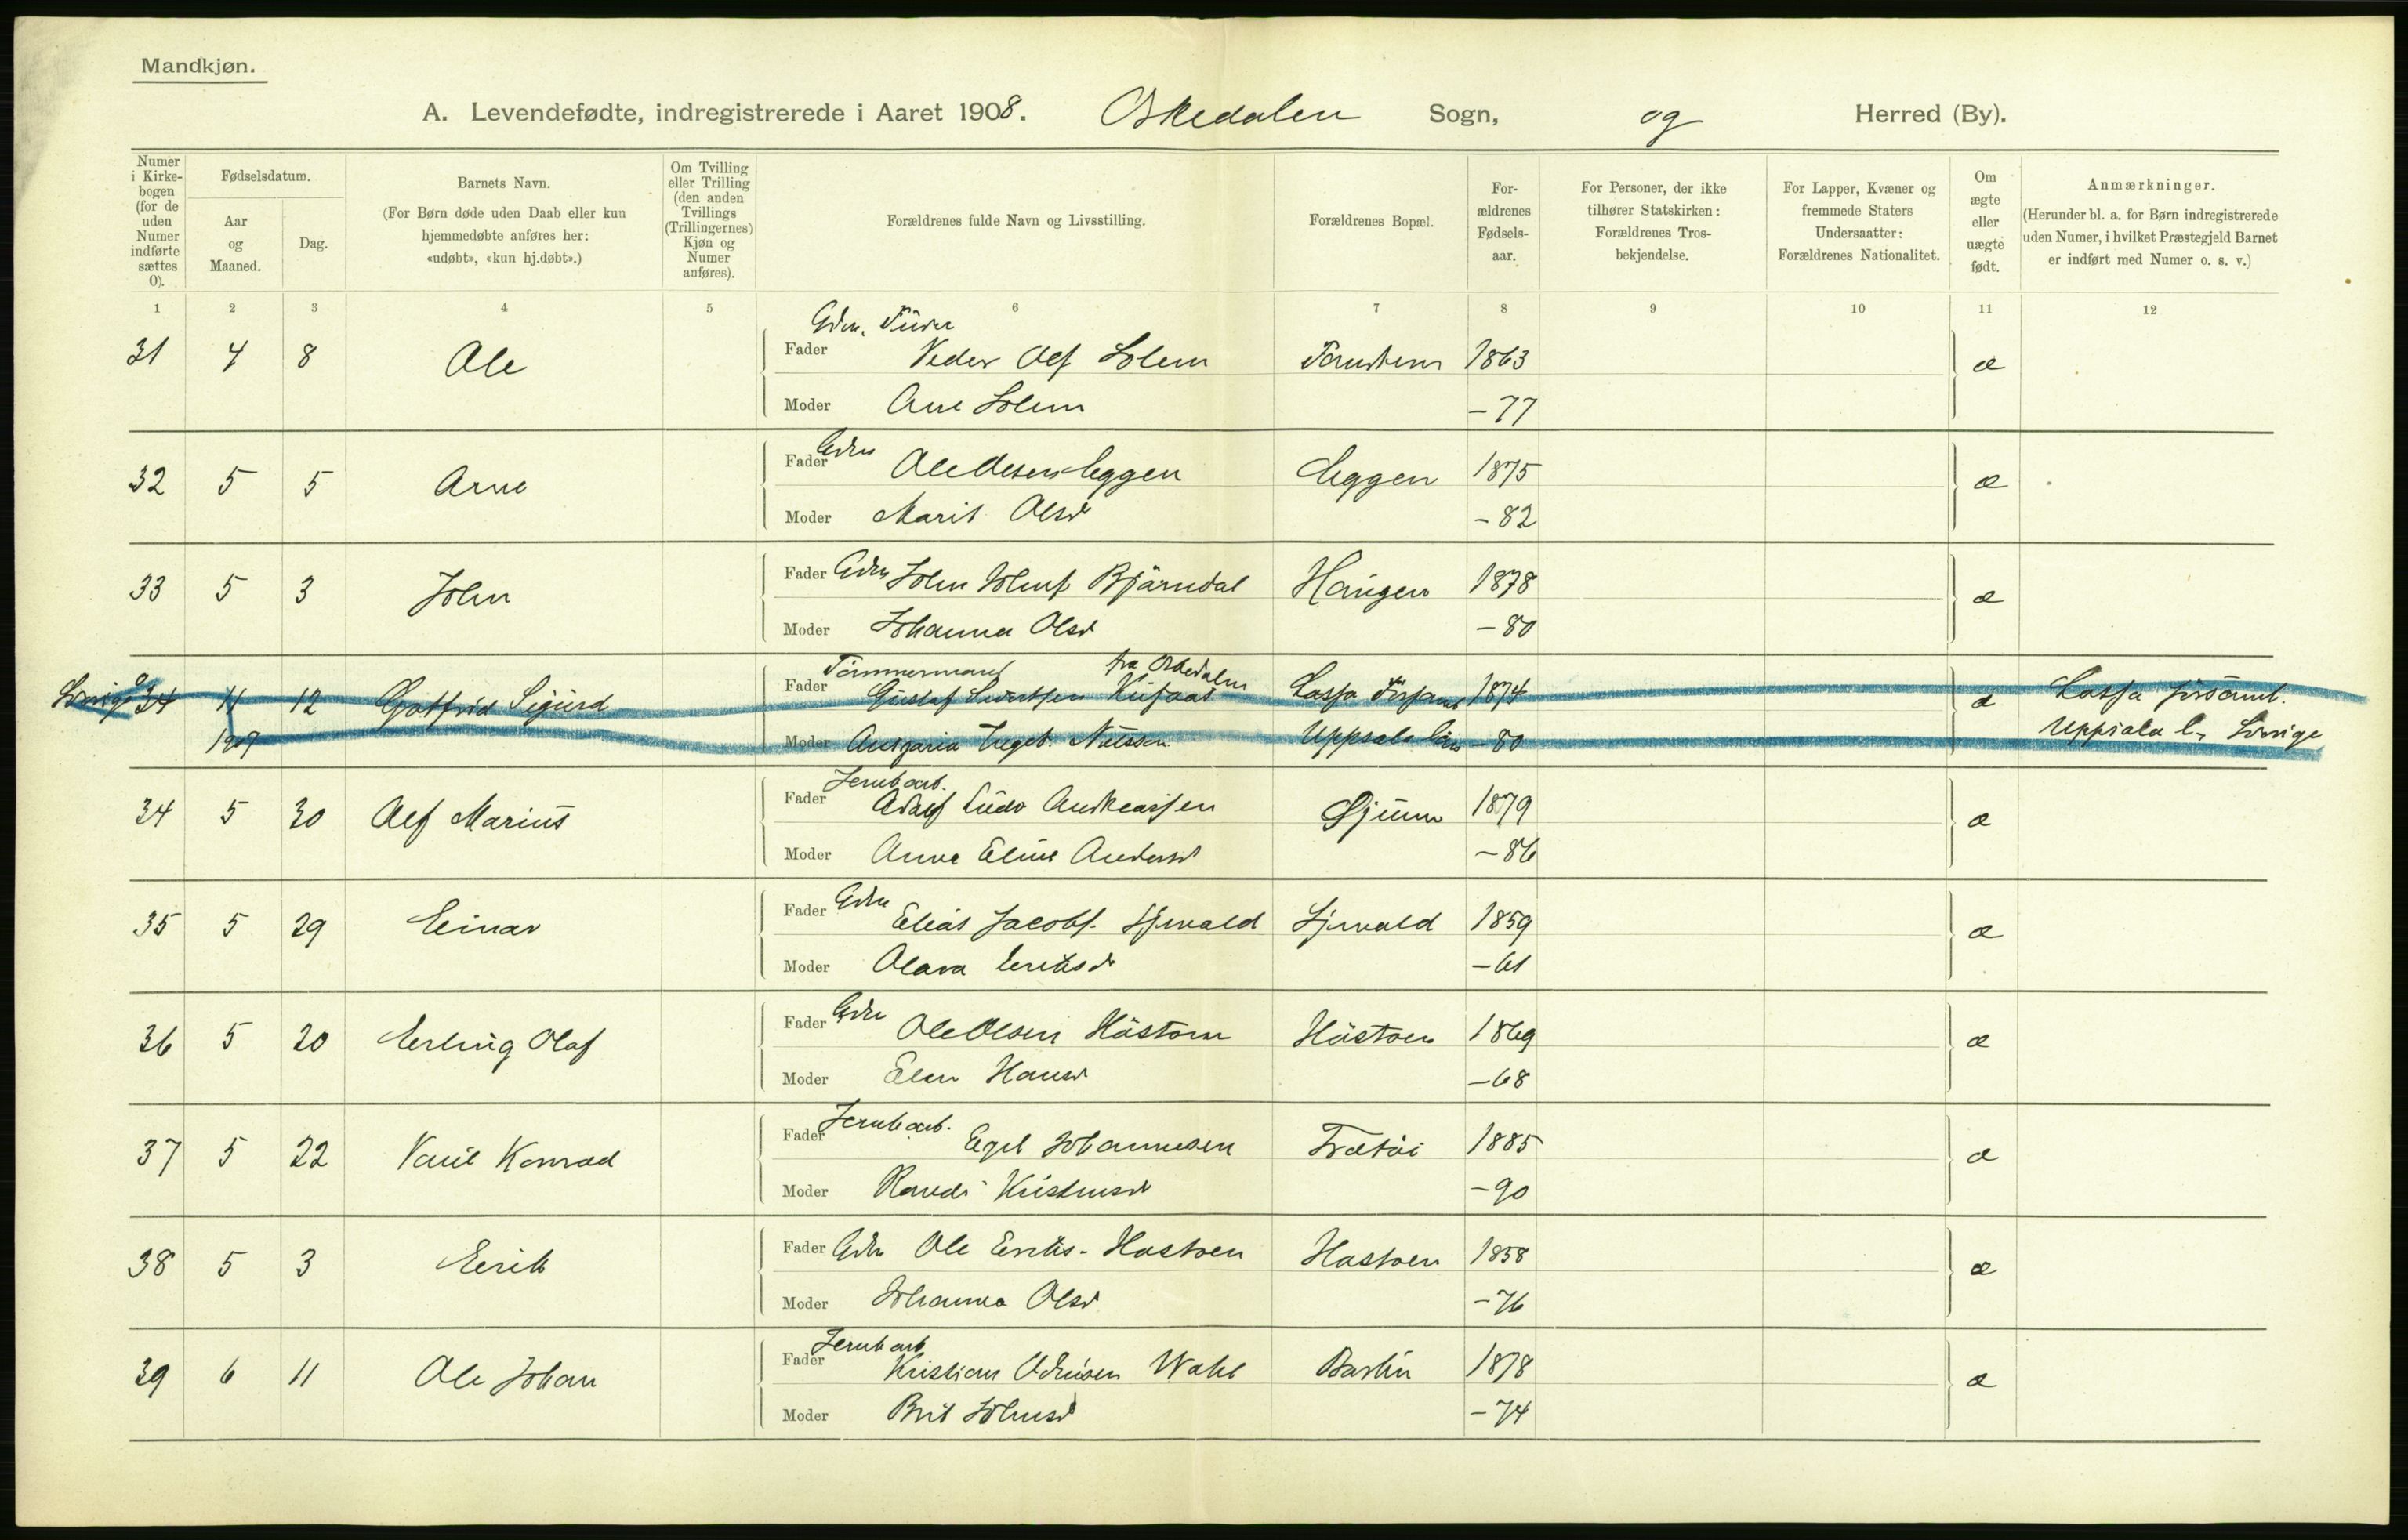 Mandkjøn.
A. Levendefødte, indregistrerede i Aaret 1908. Orkedalen Sogn, og Herred (By).
Numer i Kirkebogen (for de uden Numer indførte sættes 0).
Fødselsdatum.
Aar og Maaned.
Dag.
Barnets Navn.
(For Børn døde uden Daab eller kun hjemmedøbte anføres her: «udøbt», «kun hj.døbt».)
Om Tvilling eller Trilling (den anden Tvillings (Trillingernes) Kjøn og Numer anføres).
Forældrenes fulde Navn og Livsstilling.
Forældrenes Bopæl.
Forældrenes Fødselsaar.
For Personer, der ikke tilhører Statskirken: Forældrenes Trosbekjendelse.
For Lapper, Kvæner og fremmede Staters Undersaatter: Forældrenes Nationalitet.
Om ægte eller uægte født.
Anmærkninger.
(Herunder bl. a. for Børn indregistrerede uden Numer, i hvilket Præstegjeld Barnet er indført med Numer o. s. v.)
1 2 3 4 5 6 7 8 9 10 11 12
31 4 8 Ole Fader Peder Olsf Solem 1863 æ
Moder Ane Solem - 77
32 5 5 Arne Fader Gdr Ole Olsen Eggen Eggen 1875 æ
Moder Marit Olsd - 82
33 5 3 John Fader Gdr John Johnsf Bjørndal Haugen 1878 æ
Moder Johanna Olsd - 80
Tømmermand fra Orkedalen
Sverige 0 34 11 12 Gotfrid Sigurd Fader Gustaf 1874 æ Lassa församl.
1907 Moder Uppsala län - 80 Uppsala l. Sverige
Jernb.arb.
34 5 30 Alf Marius Fader Adolf Ludv Andreassen Gjønn 1879 æ
Moder Anna Eline Andersd - 86
35 5 29 Einar Fader Gdr Elias Jacobs. 1859 æ
Moder Olava Eriksd - 61
36 5 20 Erling Olaf Fader Gdr Ole Olsen Høstoen Høstoen 1869 æ
Moder Elen Hansd - 68
Jernb.arb.
37 5 22 Paul Konrad Fader Egil Johannesen 1885 æ
Moder Randi Kristensd - 90
38 5 3 Erik Fader Gdr Ole Eriks. Hostoen Hostoen 1858 æ
Moder Johanna Olsd - 76
Jernb arb
39 6 11 Ole Johan Fader Kristian Wahl Bårdlin 1878 æ
Moder Brit Johnsd - 74